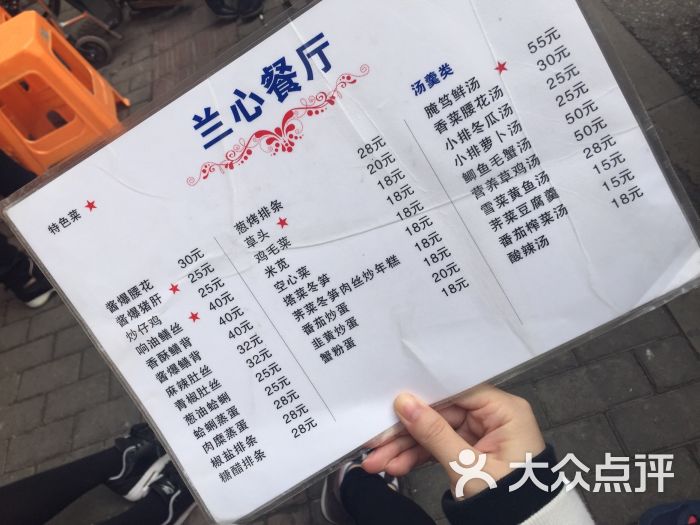 兰心餐厅
特色菜
酱爆腰花 30元
酱爆猪肝 25元
炒仔鸡 25元
响油鳝丝 40元
香酥鳝背 40元
酱爆鳝背 40元
麻辣肚丝 32元
青椒肚丝 32元
葱油蛤蜊 25元
蛤蜊蒸蛋 25元
肉糜蒸蛋 28元
椒盐排条 28元
糖醋排条 28元
葱烤排条 28元
草头 20元
鸡毛菜 18元
米苋 18元
空心菜 18元
塔菜冬笋 18元
荠菜冬笋肉丝炒年糕 18元
番茄炒蛋 18元
韭黄炒蛋 20元
蟹粉蛋 18元
汤羹类
腌笃鲜汤 55元
香菜腰花汤 30元
小排冬瓜汤 25元
小排萝卜汤 25元
鲫鱼毛蟹汤 50元
营养草鸡汤 50元
雪菜黄鱼汤 28元
荠菜豆腐羹 15元
番茄榨菜汤 15元
酸辣汤 18元
大众点评